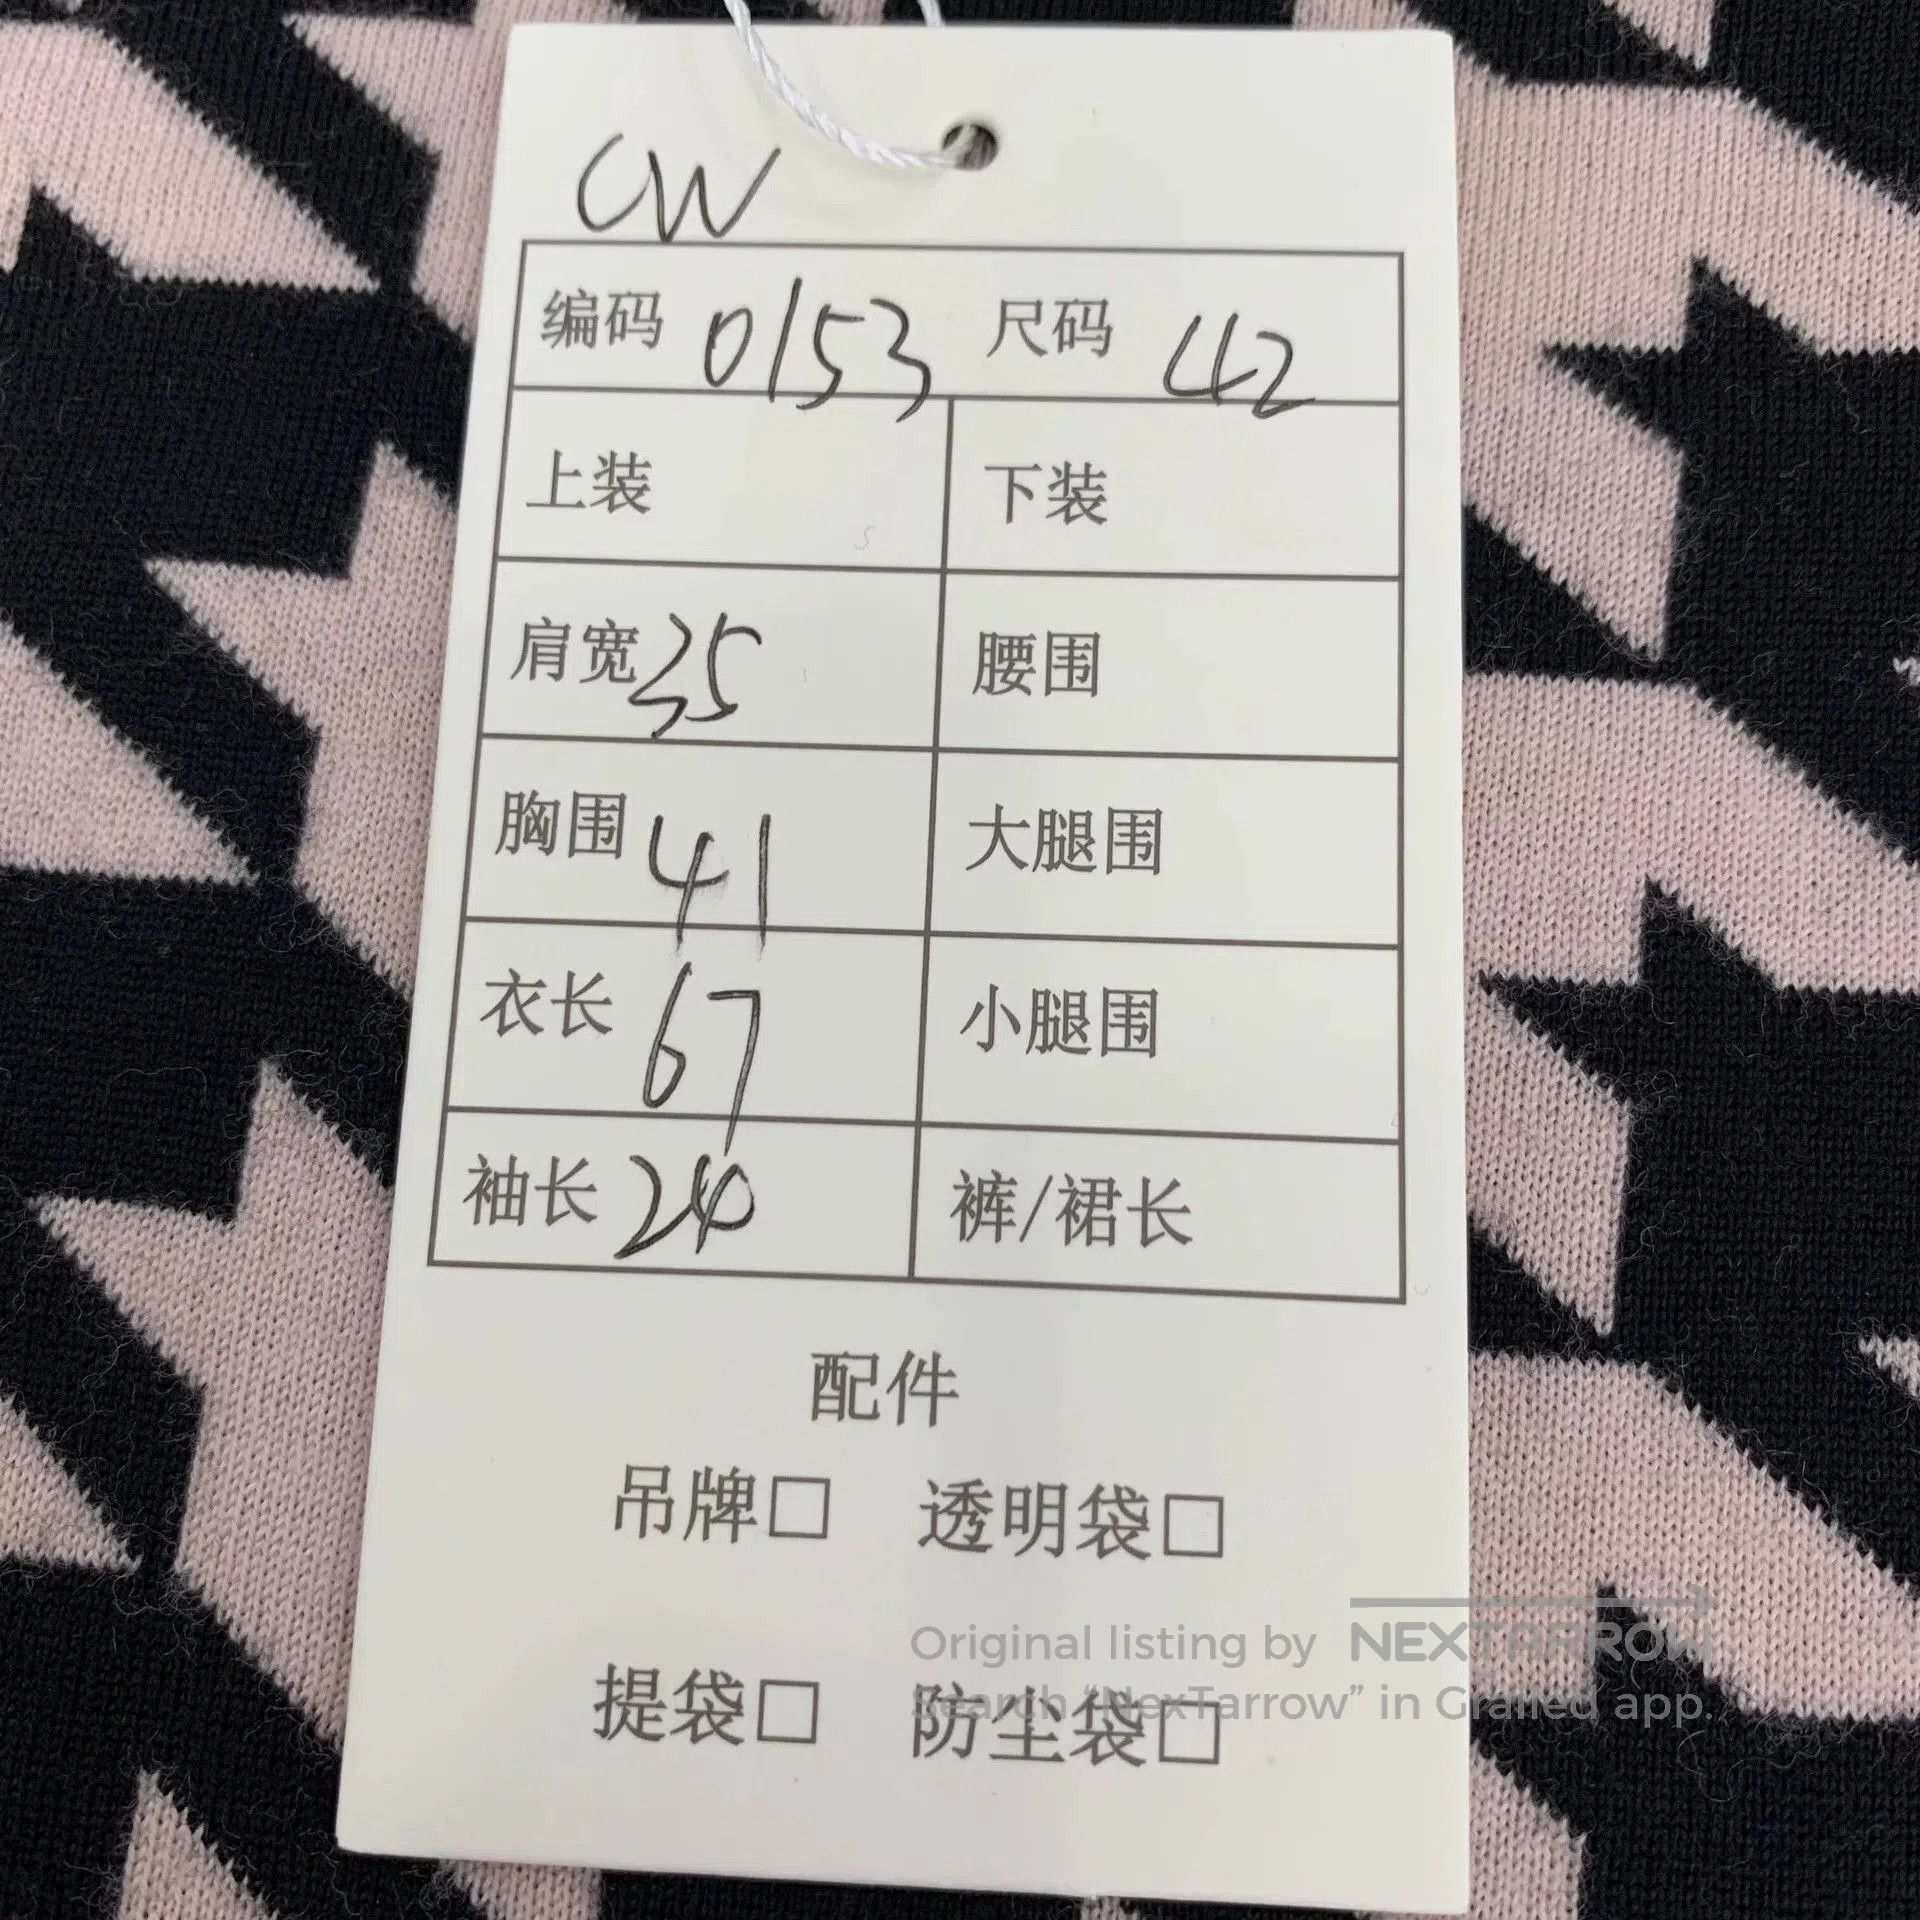 CW
编码 0153 尺码 42
上装 下装
肩宽 35 腰围
胸围 41 大腿围
衣长 67 小腿围
袖长 24 裤/裙长
配件
吊牌□ 透明袋□
Original listing by NEXTARROW
提袋□ 防尘袋□
Search “NexTarrow” in Grailed app.